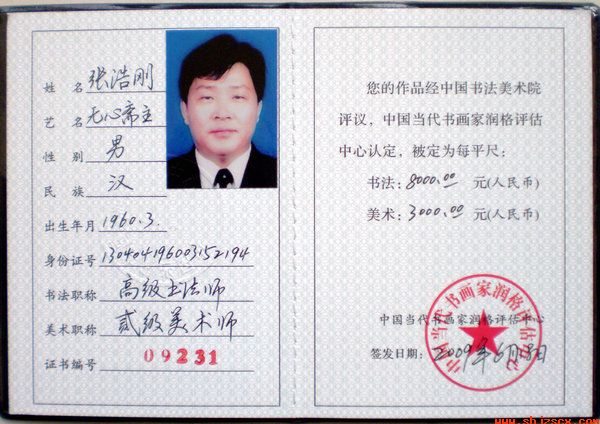 姓 名 张浩刚
艺 名 无心斋主
性 别 男
民 族 汉
出生年月 1960.3.
身份证号 130404196003152194
书法职称 高级书法师
美术职称 贰级美术师
证书编号 09231
您的作品经中国书法美术院
评议，中国当代书画家润格评估
中心认定，被定为每平尺：
书法：8000.00 元(人民币)
美术：3000.00 元(人民币)
中国当代书画家润格评估中心
签发日期：2009年6月28日
中国当代书画家润格评估中心
www.shjzscx.com